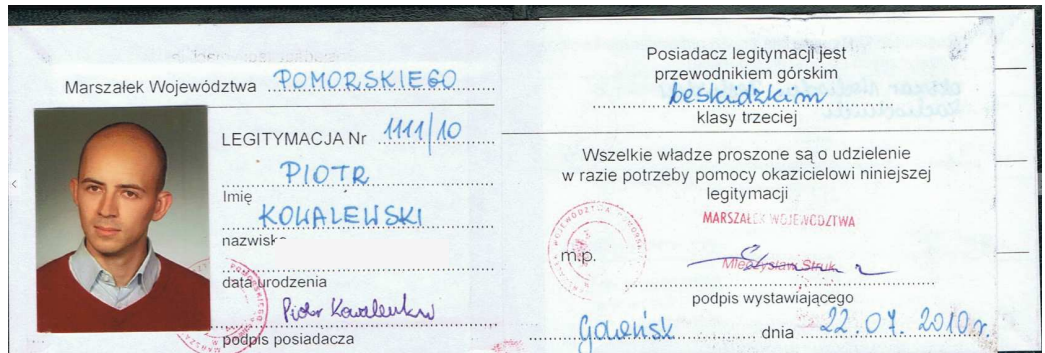 Marszałek Województwa POMORSKIEGO
LEGITYMACJA Nr 1111/10
PIOTR
Imię
KOWALEWSKI
nazwisk
data urodzenia
Piotr Kowalewski
podpis posiadacza
Posiadacz legitymacji jest
przewodnikiem górskim
beskidzkim
klasy trzeciej
Wszelkie władze proszone są o udzielenie
w razie potrzeby pomocy okazicielowi niniejszej
legitymacji
MARSZAŁEK WOJEWÓDZTWA
m.p.
Mieczysław Struk
podpis wystawiającego
Gdańsk dnia 22.07.2010r.